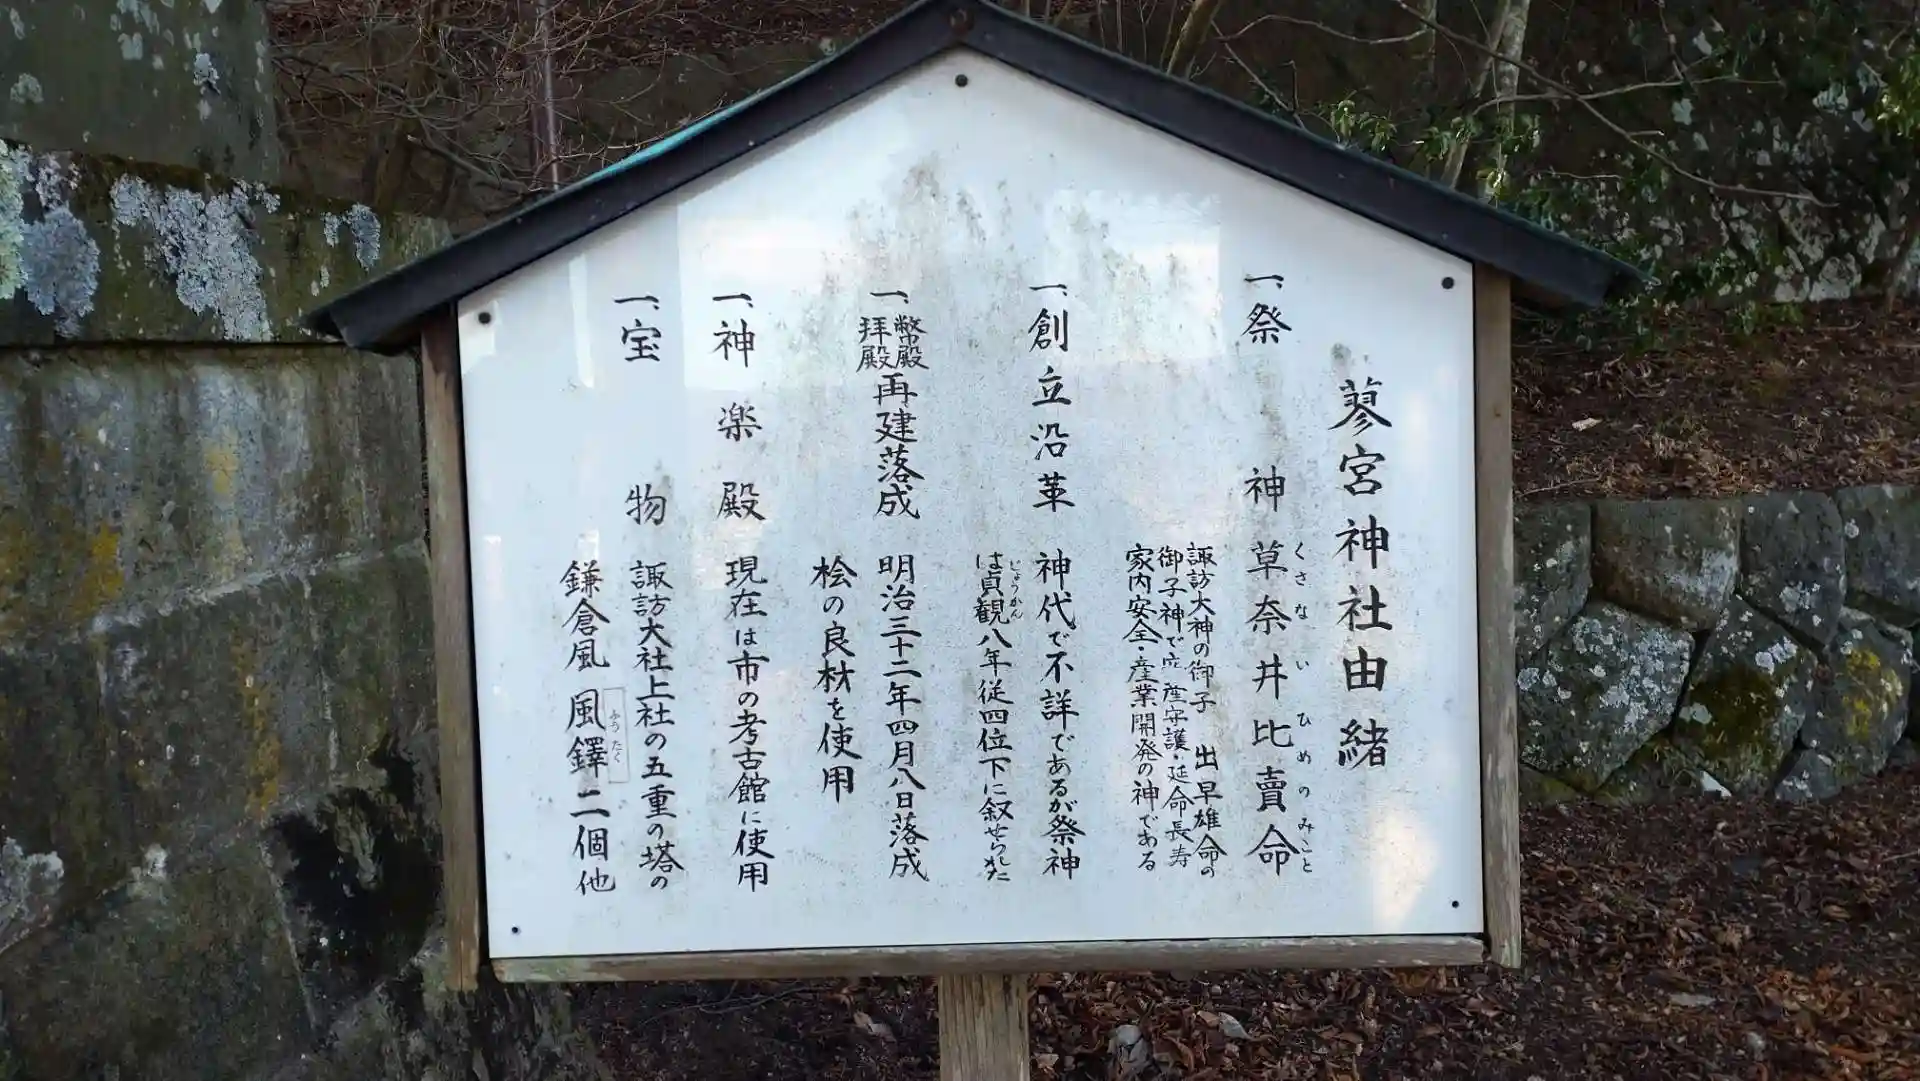 蓼宮神社由緒
一、祭神 草奈井比賣命
くさないひめのみこと
諏訪大神の御子 出早雄命の
御子神で 産守護・延命長寿
家内安全・産業開発の神である
一、創立沿革 神代で不詳であるが祭神
は貞観八年従四位下に叙せられた
じょうかん
一、幣殿拝殿再建落成 明治三十二年四月八日落成
桧の良材を使用
一、神楽殿 現在は市の考古館に使用
一、宝物 諏訪大社上社の五重の塔の
鎌倉風 風鐸二個他
ふうたく